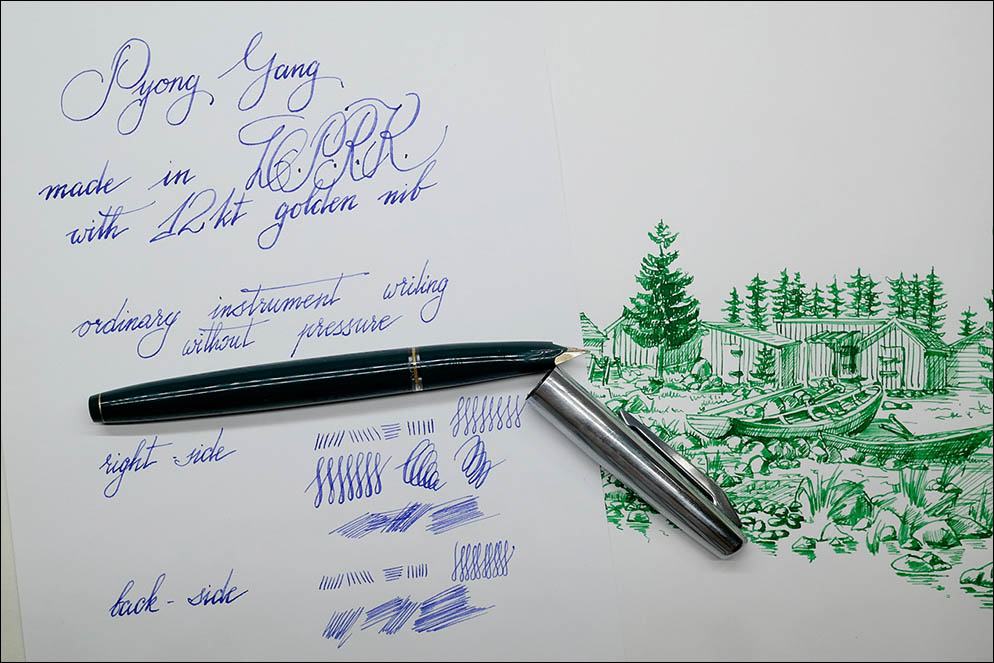 Pyong Gang
made in D.P.R.K.
with 12kt golden nib
ordinary instrument writing
without pressure
right-side
back-side